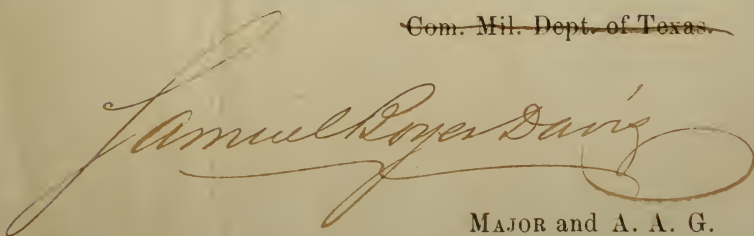 Com. Mil. Dept. of Texas.
Samuel Boyer Davis
MAJOR and A. A. G.